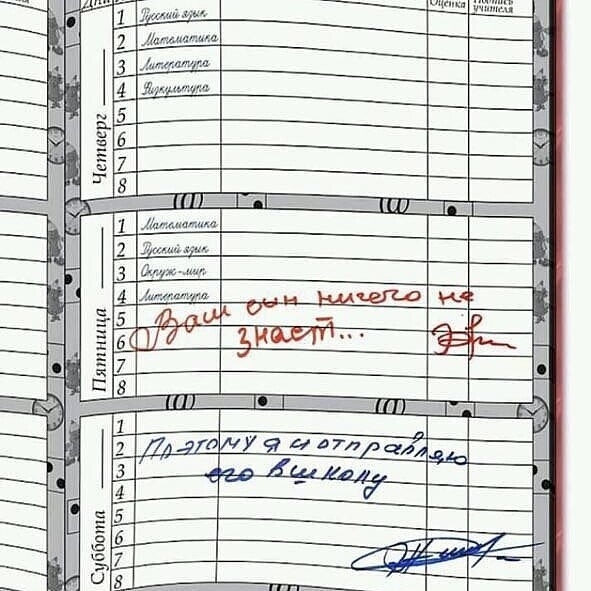 Оценка
учителя
Четверг
1 Русский язык
2 Математика
3 Литература
4 Физкультура
5
6
7
8
Пятница
1 Математика
2 Русский язык
3 Окруж-мир
4 Литература
5
6
7
8
Ваш сын ничего не
знает...
Суббота
1
2
3
4
5
6
7
8
Поэтому я и отправляю
его в школу